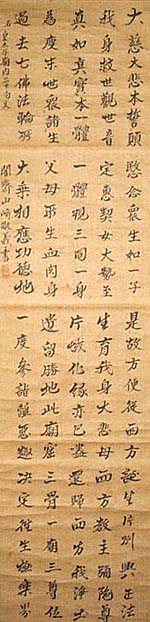 大慈大悲本誓願愍念衆生如一子是故方便從西方誕生片州興正法
我身救世觀世音定慧契女大勢至生育我身大悲母西方教主彌陀尊
真如真實本一體一體現三同一身片域化縁亦已盡還歸西方我淨土
為度末世衆諸生父母所生血肉身遺留勝地此廟崛三骨一廟三尊位
過去七佛法輪所大乘相應功徳地一度參詣離惡趣決定往生極樂界
右聖太子廟内二十句文
山崎敬義書